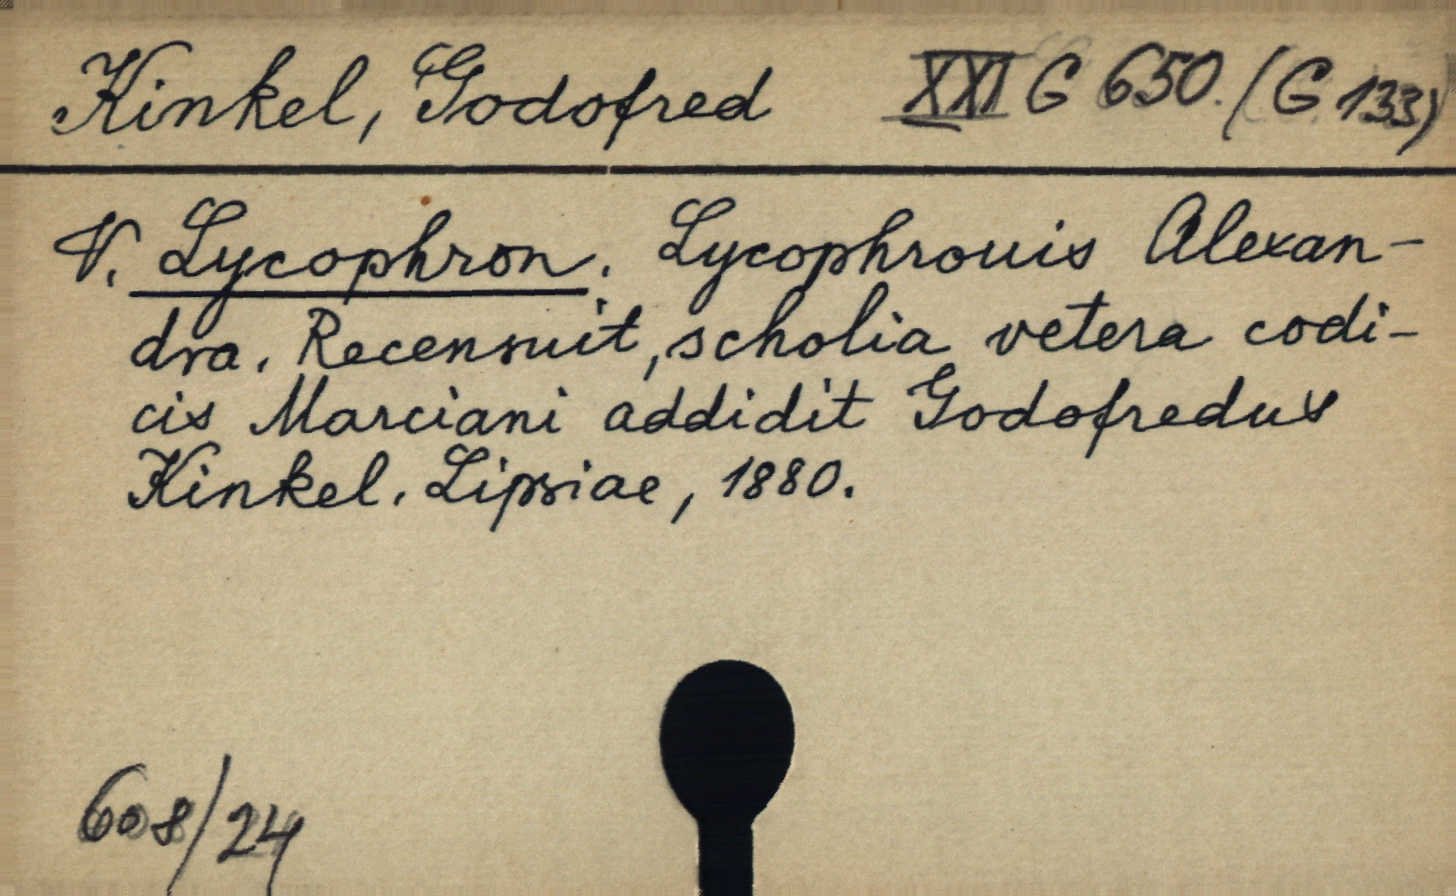 Kinkel, Godofred XXI G 650. (G 133)
V. Lycophron. Lycophronis Alexan-
dra. Recensuit, scholia vetera codi-
cis Marciani addidit Godofredus
Kinkel. Lipsiae, 1880.
608/24